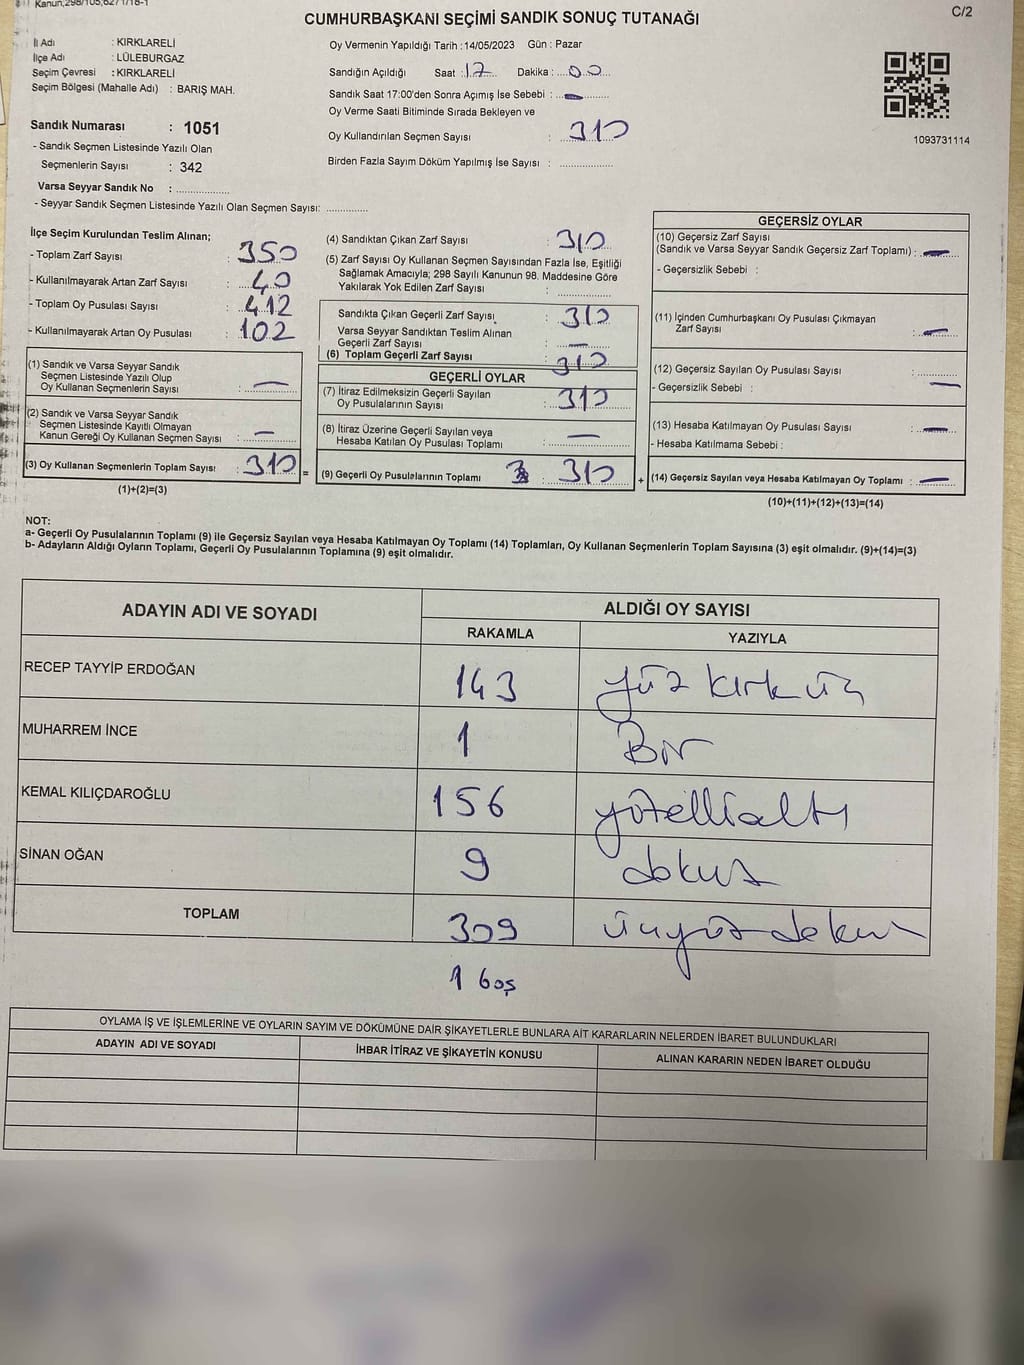 Kanun;298/105,
CUMHURBAŞKANI SEÇİMİ SANDIK SONUÇ TUTANAĞI
C/2
İl Adı : KIRKLARELİ
İlçe Adı : LÜLEBURGAZ
Seçim Çevresi : KIRKLARELİ
Seçim Bölgesi (Mahalle Adı) : BARIŞ MAH.
Sandık Numarası : 1051
- Sandık Seçmen Listesinde Yazılı Olan
Seçmenlerin Sayısı : 342
Varsa Seyyar Sandık No : ..............
- Seyyar Sandık Seçmen Listesinde Yazılı Olan Seçmen Sayısı: ...........
Oy Vermenin Yapıldığı Tarih :14/05/2023 Gün : Pazar
Sandığın Açıldığı Saat : 17 Dakika : 00
Sandık Saat 17:00'den Sonra Açımış İse Sebebi : —
Oy Verme Saati Bitiminde Sırada Bekleyen ve
Oy Kullandırılan Seçmen Sayısı : 310
Birden Fazla Sayım Döküm Yapılmış İse Sayısı : ..............
1093731114
İlçe Seçim Kurulundan Teslim Alınan;
- Toplam Zarf Sayısı : 350
- Kullanılmayarak Artan Zarf Sayısı : 40
- Toplam Oy Pusulası Sayısı : 412
- Kullanılmayarak Artan Oy Pusulası : 102
(1) Sandık ve Varsa Seyyar Sandık
Seçmen Listesinde Yazılı Olup
Oy Kullanan Seçmenlerin Sayısı : —
(2) Sandık ve Varsa Seyyar Sandık
Seçmen Listesinde Kayıtlı Olmayan
Kanun Gereği Oy Kullanan Seçmen Sayısı : —
(3) Oy Kullanan Seçmenlerin Toplam Sayısı : 310 =
(1)+(2)=(3)
(4) Sandıktan Çıkan Zarf Sayısı : 310
(5) Zarf Sayısı Oy Kullanan Seçmen Sayısından Fazla İse, Eşitliği
Sağlamak Amacıyla; 298 Sayılı Kanunun 98. Maddesine Göre
Yakılarak Yok Edilen Zarf Sayısı : ..............
Sandıkta Çıkan Geçerli Zarf Sayısı : 310
Varsa Seyyar Sandıktan Teslim Alınan
Geçerli Zarf Sayısı : —
(6) Toplam Geçerli Zarf Sayısı : 310
GEÇERLİ OYLAR
(7) İtiraz Edilmeksizin Geçerli Sayılan
Oy Pusulalarının Sayısı : 310
(8) İtiraz Üzerine Geçerli Sayılan veya
Hesaba Katılan Oy Pusulası Toplamı : —
(9) Geçerli Oy Pusulalarının Toplamı : 310 +
GEÇERSİZ OYLAR
(10) Geçersiz Zarf Sayısı
(Sandık ve Varsa Seyyar Sandık Geçersiz Zarf Toplamı) : —
- Geçersizlik Sebebi :
(11) İçinden Cumhurbaşkanı Oy Pusulası Çıkmayan
Zarf Sayısı : —
(12) Geçersiz Sayılan Oy Pusulası Sayısı : ..........
- Geçersizlik Sebebi : —
(13) Hesaba Katılmayan Oy Pusulası Sayısı : —
- Hesaba Katılmama Sebebi :
(14) Geçersiz Sayılan veya Hesaba Katılmayan Oy Toplamı : —
(10)+(11)+(12)+(13)=(14)
NOT:
a- Geçerli Oy Pusulalarının Toplamı (9) ile Geçersiz Sayılan veya Hesaba Katılmayan Oy Toplamı (14) Toplamları, Oy Kullanan Seçmenlerin Toplam Sayısına (3) eşit olmalıdır. (9)+(14)=(3)
b- Adayların Aldığı Oyların Toplamı, Geçerli Oy Pusulalarının Toplamına (9) eşit olmalıdır.
ADAYIN ADI VE SOYADI
ALDIĞI OY SAYISI
RAKAMLA YAZIYLA
RECEP TAYYİP ERDOĞAN 143 yüz kırk üç
MUHARREM İNCE 1 Bir
KEMAL KILIÇDAROĞLU 156 yüzellialtı
SİNAN OĞAN 9 dokuz
TOPLAM 309 üçyüz dokuz
1 boş
OYLAMA İŞ VE İŞLEMLERİNE VE OYLARIN SAYIM VE DÖKÜMÜNE DAİR ŞİKAYETLERLE BUNLARA AİT KARARLARIN NELERDEN İBARET BULUNDUKLARI
ADAYIN ADI VE SOYADI
İHBAR İTİRAZ VE ŞİKAYETİN KONUSU
ALINAN KARARIN NEDEN İBARET OLDUĞU